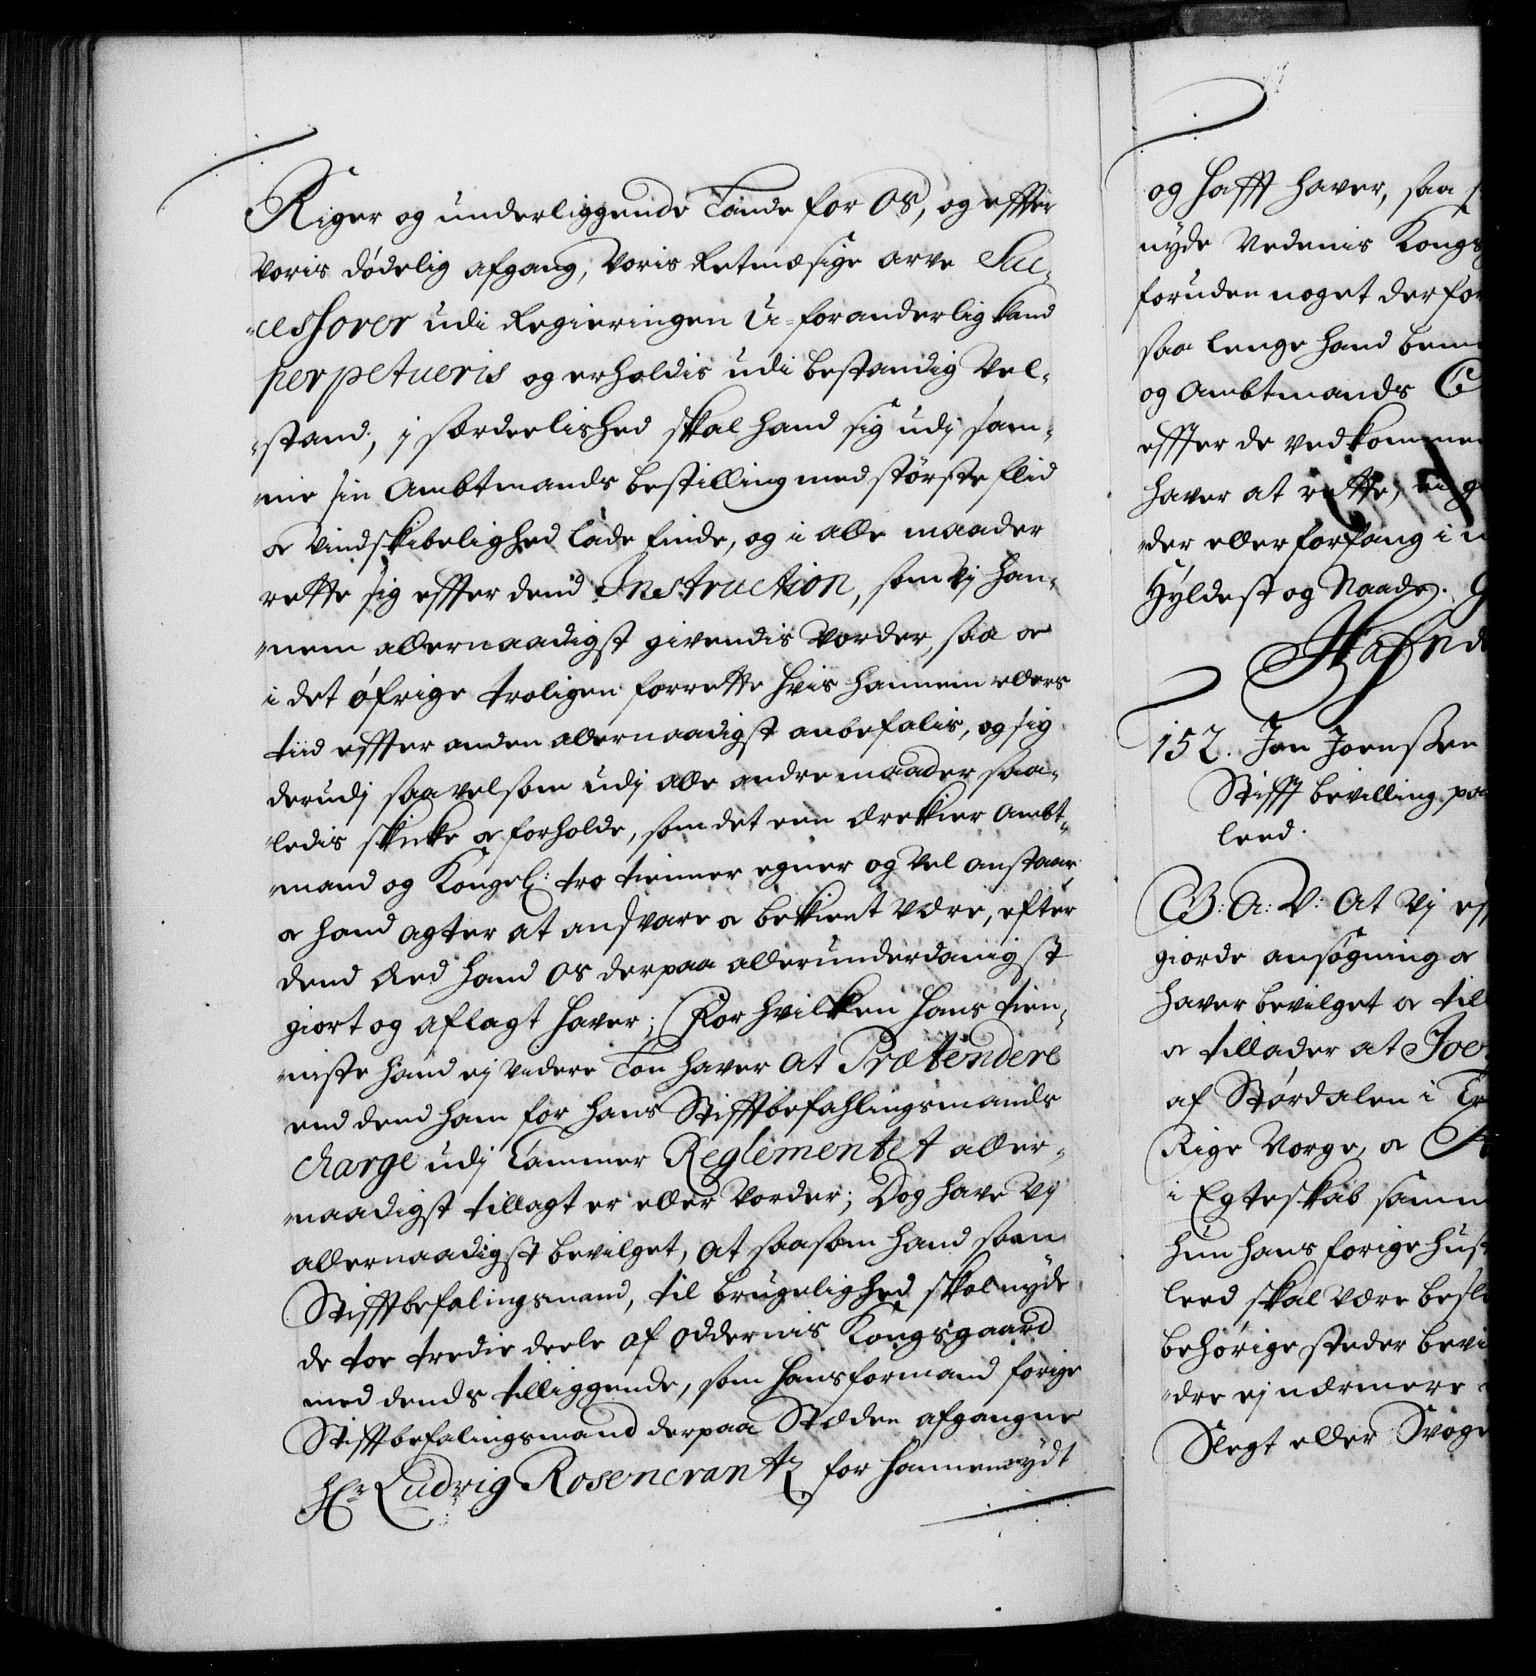 Riger og underliggende Lande for OS, og effter
voris dødelig afgang, voris Retmæsige arve Suc-
-cessorer udi Regieringen U-foranderlig kand
perpetueris og erholdis udi bestandig Vel-
-stand, j særdeelished skal hand sig udj sam-
-me sin Ambtmands bestilling med største flid
oc Vindskibelighed lade finde, og i alle maader
rette sig effter dend Instruction, som Vj han-
-nem allernaadigst givendis Vorder, saa oc
i det øfrige troligen forrette hvis hannem ellers
tiid effter anden allernaadigst anbefalis, og sig
derudj saavelsom udj alle andre maader saa-
-ledis skicke oc forholde, som det een ærekier Ambt-
-mand og Kongel: tro tienner egner og Vel anstaar,
oc hand agter at andsvare oc bekient Være, efter
dend Æed hand OS derpaa allerunderdanigst
giort og aflagt haver; For hvilken hans tien-
-niste hand ej videre Løn haver at Prætendere
end dend ham for hans Stifftbefahlingsmands
charge udj Cammer Reglementet aller-
-naadigst tillagt er eller Vorder; Dog have Vj
allernaadigst bevilget, at saasom hand som
Stifftbefalingsmand, til brugelighed skal nyde
de toe tredie deele af Oddernis Kongsgaard
med dends tilliggende, som hans formand forige
Stifftbefalingsmand derpaa Stæden afgangne
Hr. Ludvig Rosencrantz for hannem nydt
og hafft haver, saa
nyde Vedenis Kongs
foruden noget derfor
saa lenge hand
og Ambtmands
effter de vedkommen
haver at rette, og
-der eller forfang i
Hyldest og Naade.
Hafn
152. Jon Joenssen
Stifft bevilling paa
leed.
G: A: V: At Vj
giorde ansøgning oc
haver bevilget oc till
oc tillader at Joe
af Størdalen i
Rige Norge, oc
i Egteskab samm
hun hans forige hust
leed skal Være besl
behørige steder bevi
-dre ej nærmere
Slegt eller Svoge